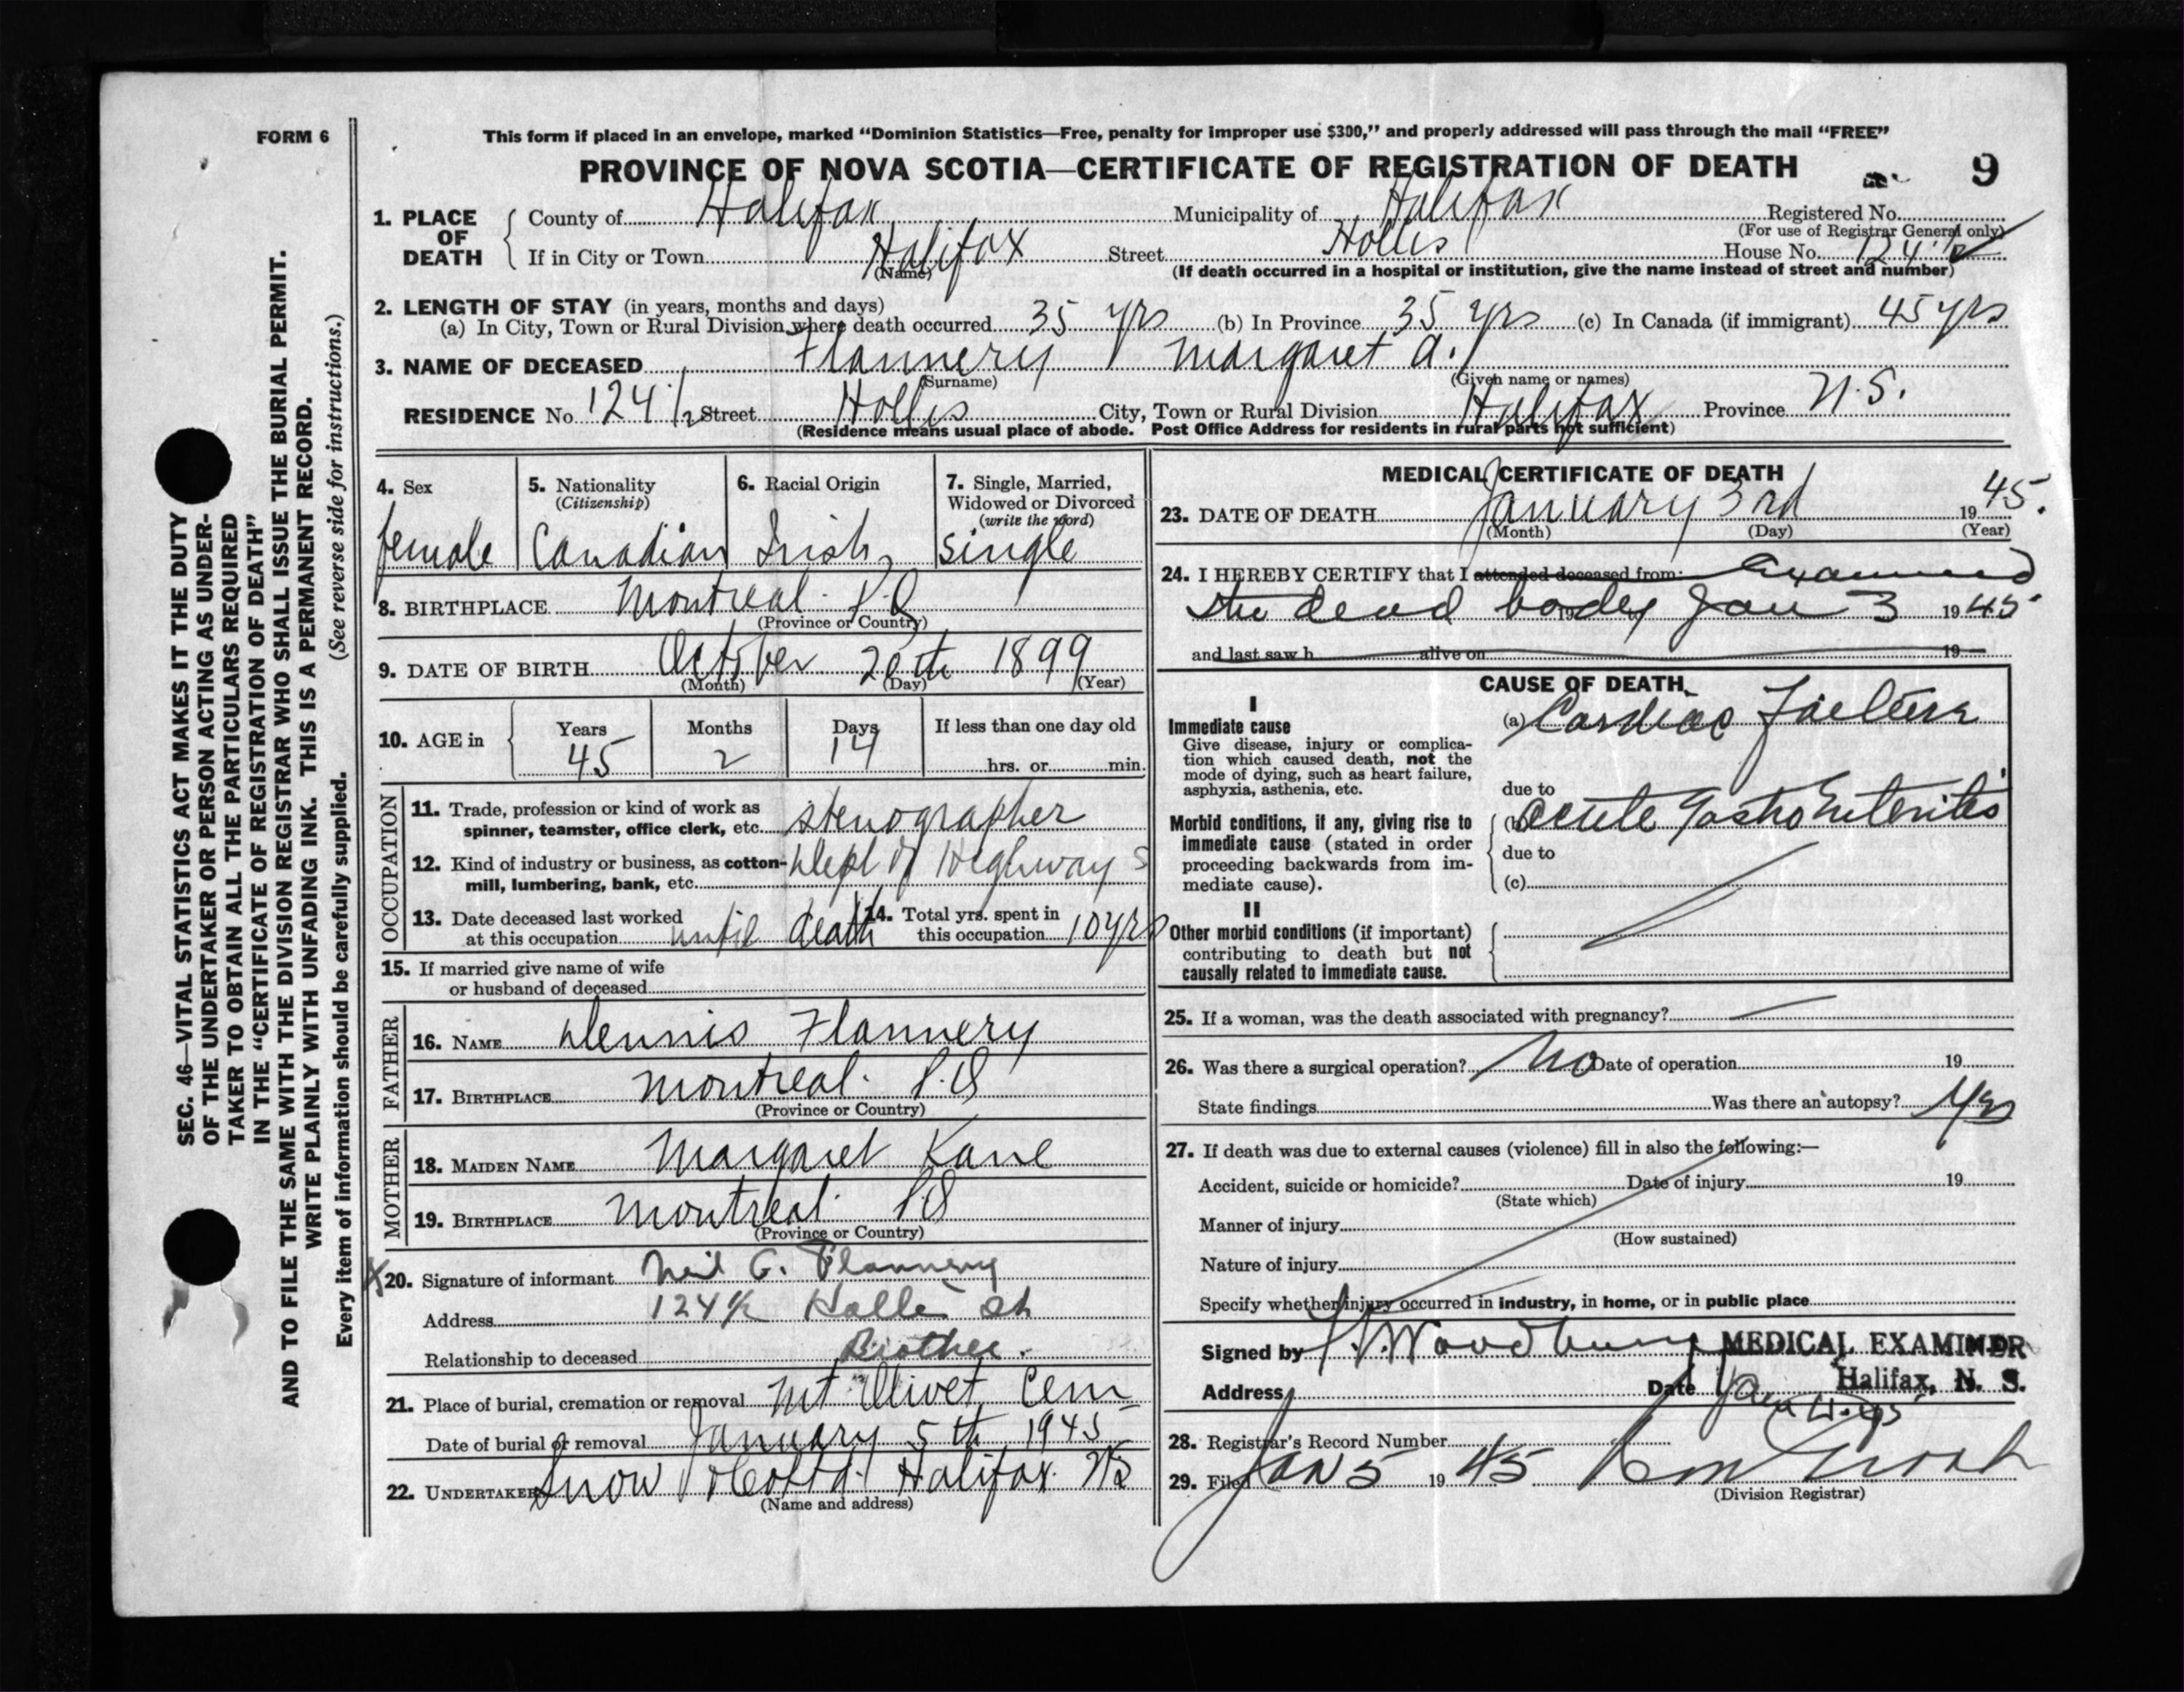 FORM 6
This form if placed in an envelope, marked “Dominion Statistics—Free, penalty for improper use $300,” and properly addressed will pass through the mail “FREE”
PROVINCE OF NOVA SCOTIA—CERTIFICATE OF REGISTRATION OF DEATH
9
1. PLACE OF DEATH
County of Halifax Municipality of Halifax Registered No.
(For use of Registrar General only)
If in City or Town Halifax Street Hollis House No. 124 1/2
(Name) (If death occurred in a hospital or institution, give the name instead of street and number)
2. LENGTH OF STAY (in years, months and days)
(a) In City, Town or Rural Division where death occurred 35 yrs (b) In Province 35 yrs (c) In Canada (if immigrant) 45 yrs
3. NAME OF DECEASED Flannery Margaret A.
(Surname) (Given name or names)
RESIDENCE No. 124 1/2 Street Hollis City, Town or Rural Division Halifax Province N.S.
(Residence means usual place of abode. Post Office Address for residents in rural parts not sufficient)
4. Sex
female
5. Nationality
(Citizenship)
Canadian
6. Racial Origin
Irish
7. Single, Married,
Widowed or Divorced
(write the word)
single
8. BIRTHPLACE Montreal P.Q
(Province or Country)
9. DATE OF BIRTH October 20th 1899
(Month) (Day) (Year)
10. AGE in
Years Months Days If less than one day old
45 2 14 hrs. or min.
OCCUPATION
11. Trade, profession or kind of work as
spinner, teamster, office clerk, etc. stenographer
12. Kind of industry or business, as cotton-
mill, lumbering, bank, etc. Dept of Highways
13. Date deceased last worked
at this occupation until death
14. Total yrs. spent in
this occupation 10 yrs
15. If married give name of wife
or husband of deceased
FATHER
16. NAME Dennis Flannery
17. BIRTHPLACE Montreal P.Q
(Province or Country)
MOTHER
18. MAIDEN NAME Margaret Kane
19. BIRTHPLACE Montreal P.Q
(Province or Country)
X 20. Signature of informant Neil G. Flannery
Address 124 1/2 Hollis St
Relationship to deceased Brother.
21. Place of burial, cremation or removal Mt Olivet Cem
Date of burial or removal January 5th 1945
22. UNDERTAKER Snow & Co Ltd. Halifax NS
(Name and address)
MEDICAL CERTIFICATE OF DEATH
23. DATE OF DEATH January 3rd 1945.
(Month) (Day) (Year)
24. I HEREBY CERTIFY that I attended deceased from: Examined
the dead body Jan 3 1945
and last saw h alive on 19
CAUSE OF DEATH
I
Immediate cause
Give disease, injury or complica-
tion which caused death, not the
mode of dying, such as heart failure,
asphyxia, asthenia, etc.
(a) Cardiac Failure
due to
Morbid conditions, if any, giving rise to
immediate cause (stated in order
proceeding backwards from im-
mediate cause).
(b) Acute Gastro Enteritis
due to
(c)
II
Other morbid conditions (if important)
contributing to death but not
causally related to immediate cause.
25. If a woman, was the death associated with pregnancy?
26. Was there a surgical operation? No Date of operation 19
State findings Was there an autopsy? Yes
27. If death was due to external causes (violence) fill in also the following:—
Accident, suicide or homicide? Date of injury 19
(State which)
Manner of injury
(How sustained)
Nature of injury
Specify whether injury occurred in industry, in home, or in public place
Signed by Woodbury MEDICAL EXAMINER
Address Date Jan 4.45 Halifax, N. S.
28. Registrar's Record Number
29. Filed Jan 5 1945
(Division Registrar)
SEC. 46—VITAL STATISTICS ACT MAKES IT THE DUTY
OF THE UNDERTAKER OR PERSON ACTING AS UNDER-
TAKER TO OBTAIN ALL THE PARTICULARS REQUIRED
IN THE “CERTIFICATE OF REGISTRATION OF DEATH”
AND TO FILE THE SAME WITH THE DIVISION REGISTRAR WHO SHALL ISSUE THE BURIAL PERMIT.
WRITE PLAINLY WITH UNFADING INK. THIS IS A PERMANENT RECORD.
Every item of information should be carefully supplied. (See reverse side for instructions.)